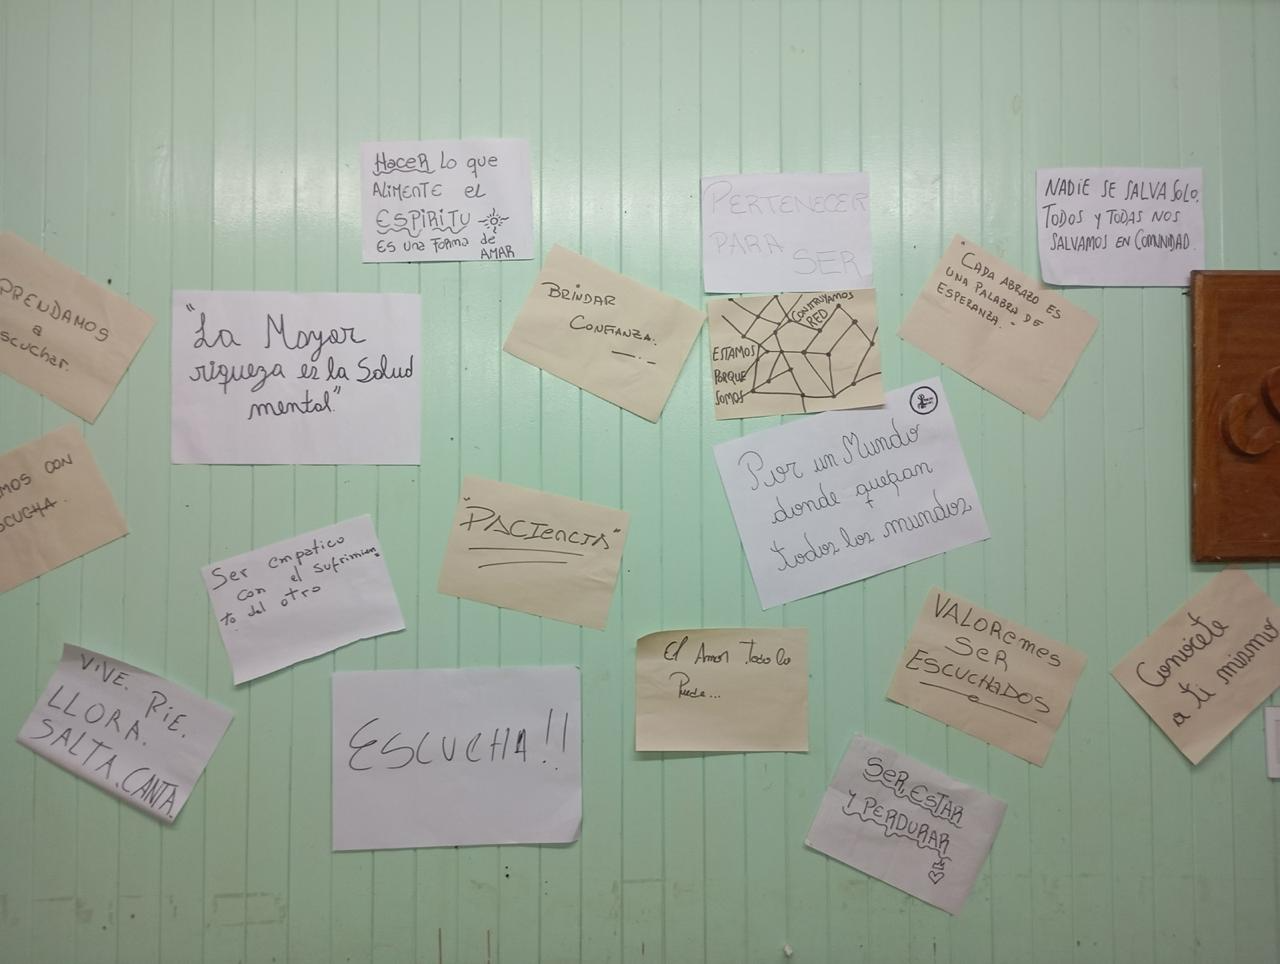 Hacer lo que
ALIMENTE el
ESPIRITU
ES una forma de
AMAR
PERTENECER
PARA
SER
NADIE SE SALVA SOLO.
TODOS y TODAS NOS
SALVAMOS EN COMUNIDAD.
PRENDAMOS
a
escuchar.
"La Mayor
riqueza es la Salud
mental"
BRINDAR
CONFIANZA.
CONSTRUYAMOS
RED
ESTAMOS
PORQUE
SOMOS
"CADA ABRAZO ES
UNA PALABRA DE
ESPERANZA."
MOS CON
SCUCHA.
Ser empatico
con el sufrimien
to del otro
"PACIENCIA"
Por un Mundo
donde quepan
todos los mundos
VIVE. RIE.
LLORA.
SALTA. CANTA.
ESCUCHA!!
El Amor Todo lo
Puede...
VALOREMES
SER
ESCUCHADOS
Conocete
a ti mismo
SER, ESTAR
Y PERDURAR